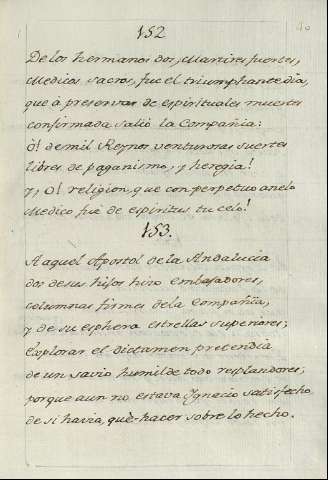 152
De los hermanos dos, Martires fuertes,
Medicos sacros, fue el triumphante dia,
que à preservar de espirituales muertes
confirmada salió la Compañia:
ò! de mil Reynos venturosas suertes
libres de paganismo, y heregia!
y, O! religion, que con perpetuo anelo
Medico fue de espiritus tu celo!
153.
A aquel Apostol de la Andalucia
dos de sus hijos hizo embajadores,
columnas firmes de la Compañia,
y de su esphera estrellas superiores;
explorar el dictamen pretendia
de un savio humilde todo resplandores;
porque aun no estava Ignacio satisfecho
de si havia, què hacer sobre lo hecho.